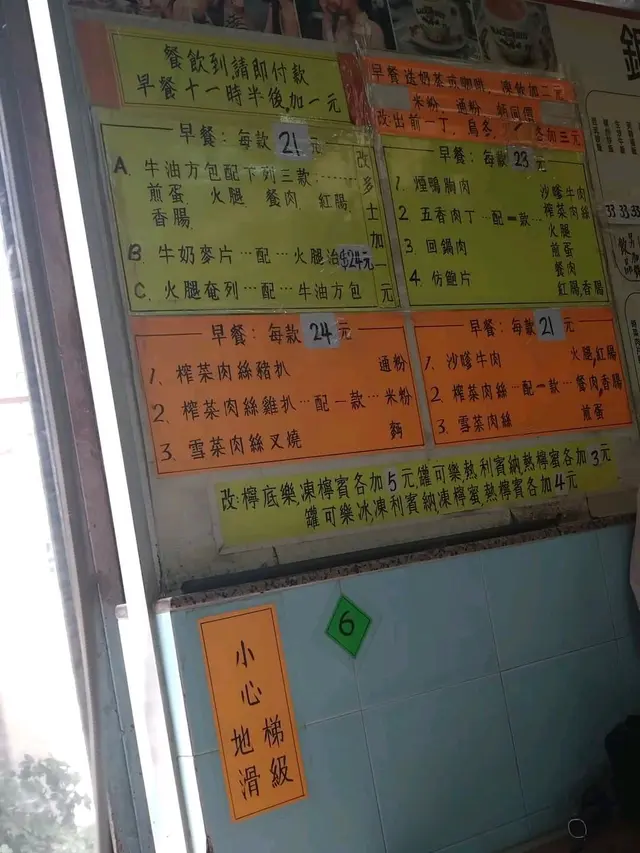 餐飲到請即付款
早餐十一時半後,加一元
早餐送奶茶或咖啡,凍飲加二元
米粉 通粉 麵同價
改:出前一丁,烏冬, 各加三元
早餐:每款21元
A. 牛油方包配下列三款
煎蛋. 火腿. 餐肉. 紅腸.
香腸.
B. 牛奶麥片…配…火腿治$24元
C. 火腿奄列…配…牛油方包
改多士加一元
早餐:每款23元
1. 煙鴨胸肉
2. 五香肉丁…配一款…
3. 回鍋肉
4. 仿鮑片
沙嗲牛肉
榨菜肉絲
火腿
煎蛋
餐肉
紅腸,香腸
早餐:每款24元
1. 榨菜肉絲豬扒 通粉
2. 榨菜肉絲雞扒…配一款…米粉
3. 雪菜肉絲叉燒 麵
早餐:每款21元
1. 沙嗲牛肉 火腿,紅腸
2. 榨菜肉絲…配一款…餐肉,香腸
3. 雪菜肉絲 煎蛋
改:檸底樂,凍檸賓各加5元,罐可樂,熱利賓納,熱檸蜜各加3元
罐可樂冰,凍利賓納凍檸蜜,熱檸賓各加4元
6
小心
地滑
梯級